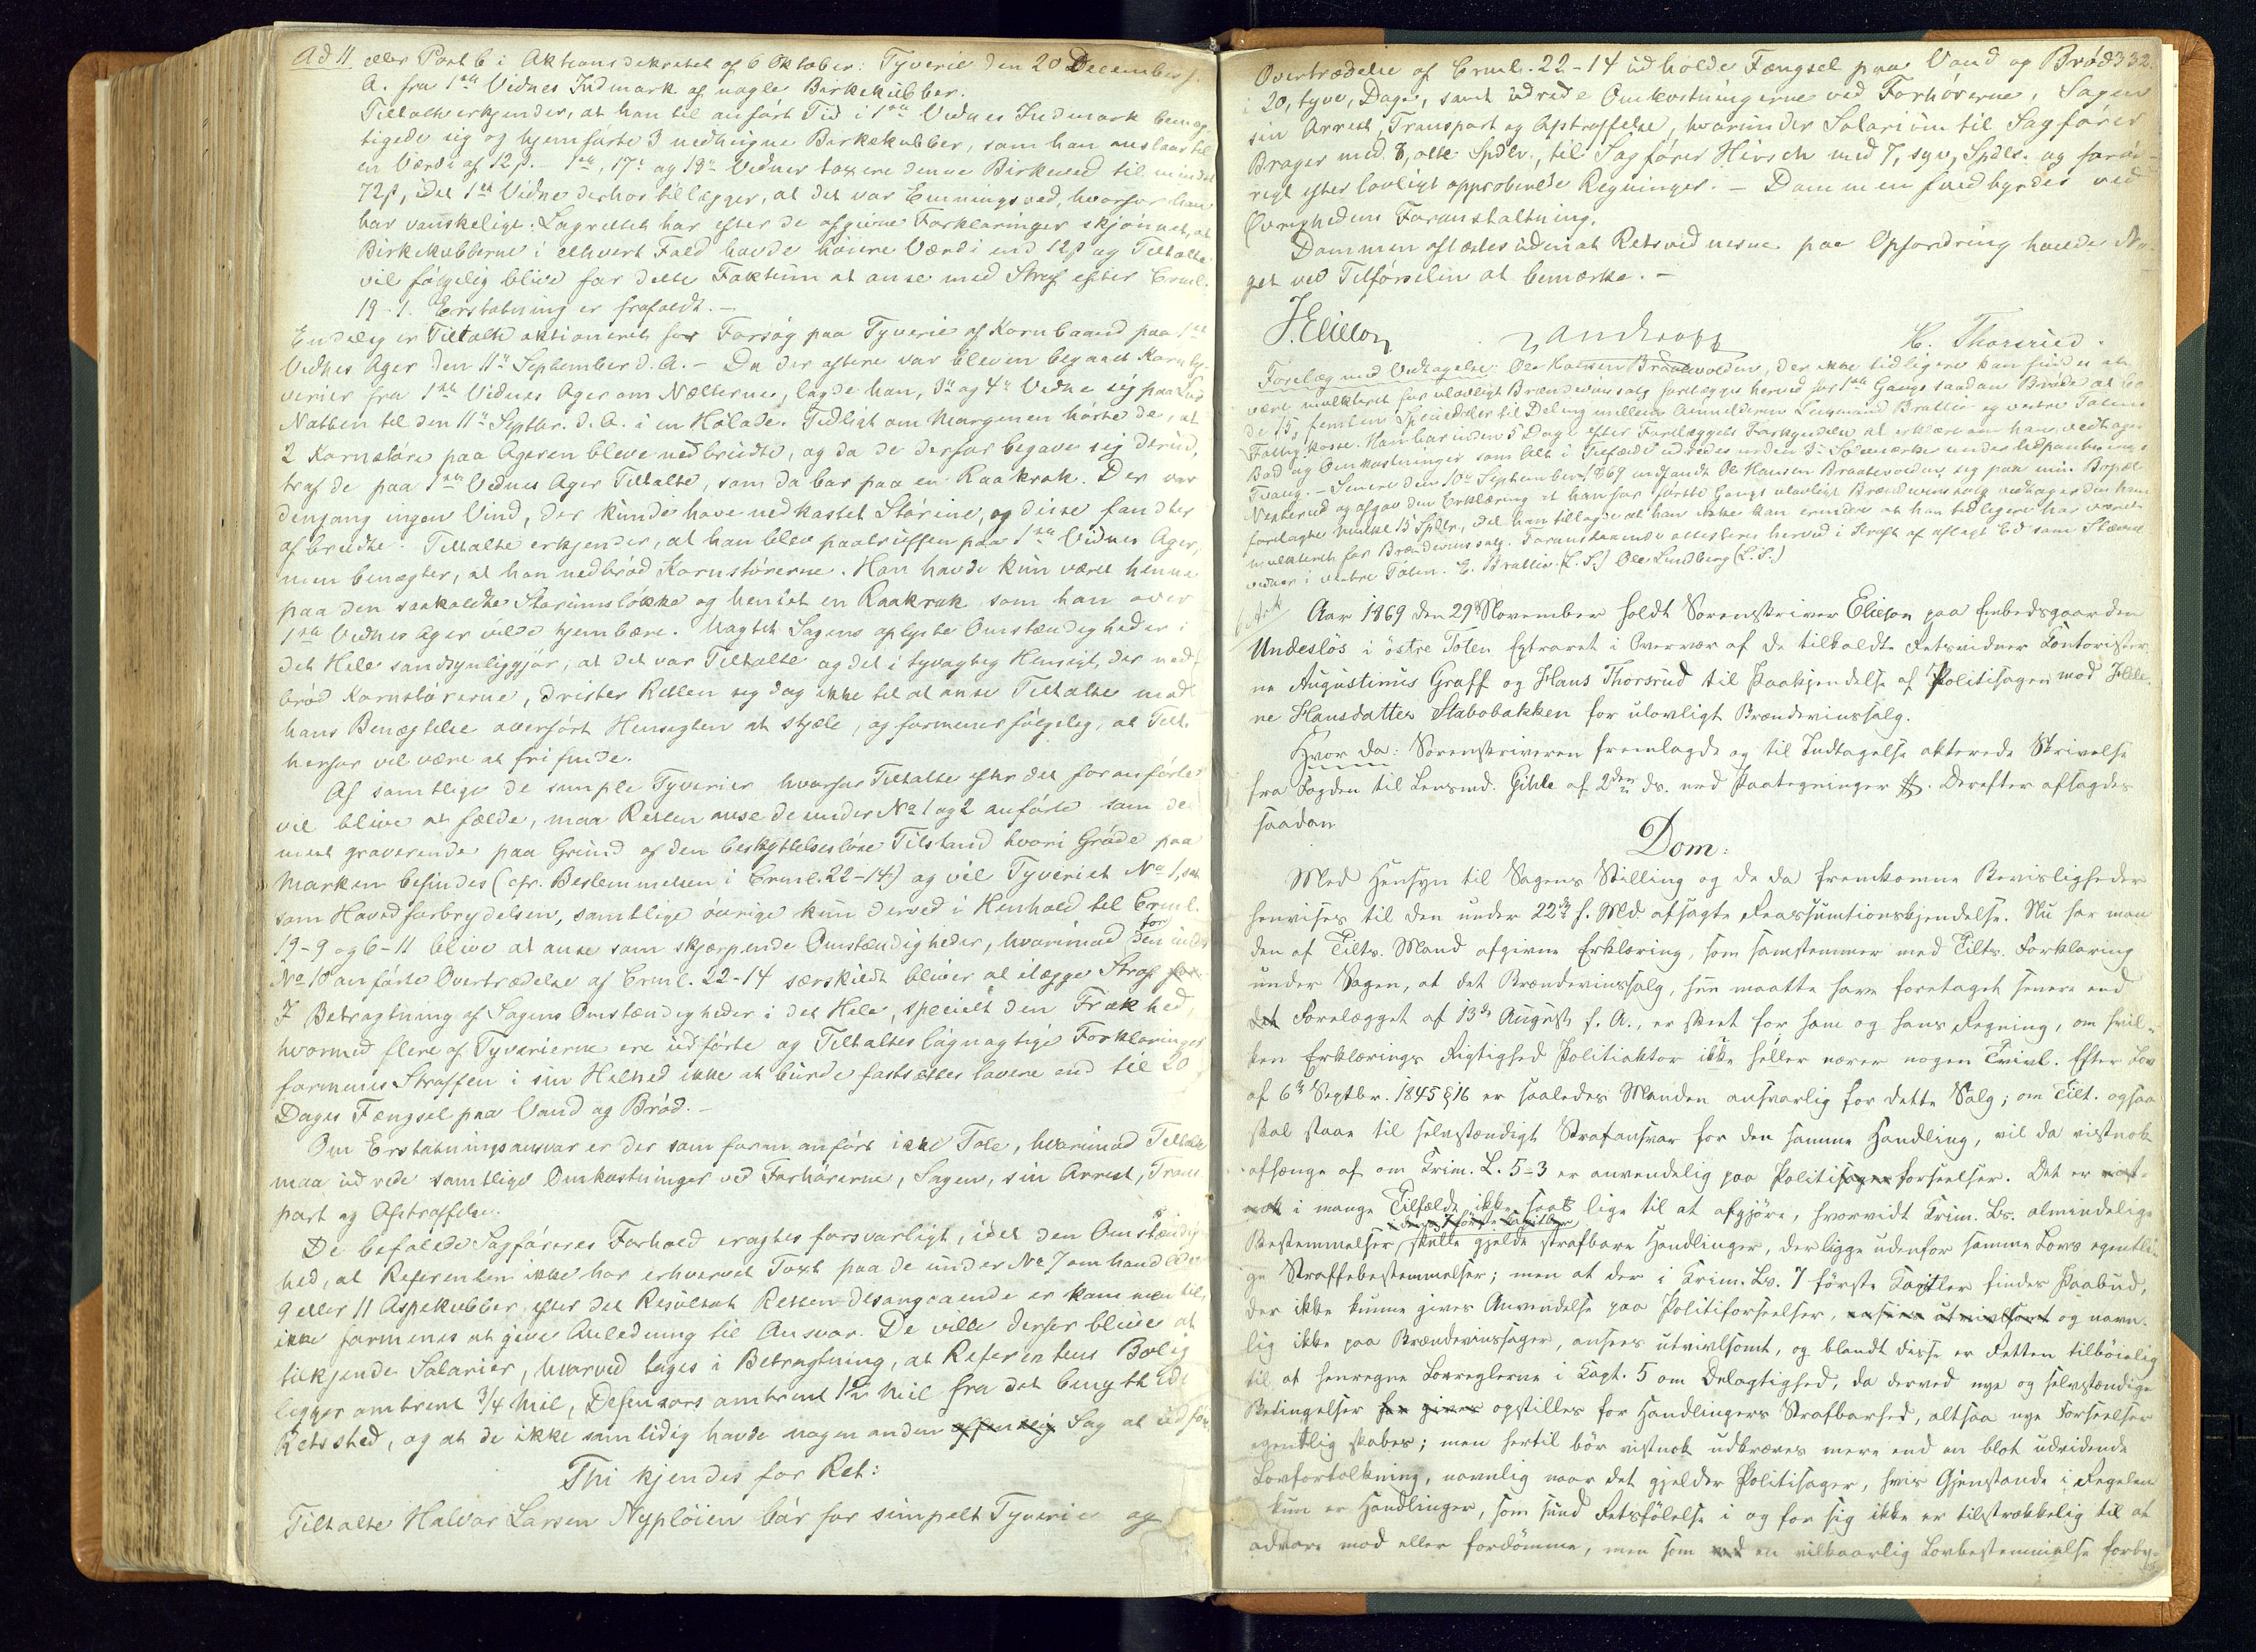 Ad 11 eller Post 6 i Aktionsdekretet af 6 Oktober: Tyverie den 20 December f.
A. fra 1ste Vidnes Indmark af nogle Birkekubber.
Tiltalte erkjender, at han til anført Tid i 1ste Vidnes Indmark bemæg-
tigede sig og hjemførte 3 nedhugne Birkekubber, som han anslaar til
en Værdi af 12 s. 1ste, 17de og 18de Vidner taxere denne Birkeved til mindst
72 s, idet 1ste Vidne derhos tillægger, at det var Emningsved, hvorfor han
har vanskeligt. Lagrettet har efter de afgivne Forklaringer skjønnet, at
Birkekubberne i ethvert Fald havde höiere Værdi end 12 s og Tiltalte
vil følgelig blive for dette Faktum at anse med Straf efter Crml.
19-1. Erstatning er frafaldt. —
Endelig er Tiltalte aktioneret for Forsøg paa Tyverie af Kornbaand paa 1ste
Vidnes Ager den 11te September d. A. — Da der oftere var bleven begaaet Kornty-
verier fra 1ste Vidnes Ager om Nætterne, lagde han, 3de og 4de Vidne sig paa Lur
Natten til den 11te Septbr. d. A. i en Hølade. Tidligt om Morgenen hørte de, at
2 Kornstører paa Ageren bleve nedbrudte, og da de derfor begave sig derud,
traf de paa 1ste Vidnes Ager Tiltalte, som da bar paa en Raakrak. Der var
dengang ingen Vind, der kunde have nedkastet Störine, og disse fandtes
afbrudte. Tiltalte erkjender, at han blev paatruffen paa 1ste Vidnes Ager,
men benægter, at han nedbrød Kornstørerne. Han havde kun været henne
paa den saakaldte Starumsløkke og hentet en Raakrak som han over
1ste Vidnes Ager vilde hjembære. Uagtet Sagens oplyste Omstændigheder i
det Hele sandsynliggjør, at det var Tiltalte og det i tyvagtig Hensigt, der ned-
brød Kornstørerne, drister Retten sig dog ikke til at anse Tiltalte mod
hans Benægtelse overført Hensigten at stjæle, og formener følgelig, at Tilt.
herfor vil være at frifinde.
Af samtlige de simple Tyverier hvorfor Tiltalte efter det foranførte
vil blive at fælde, maa Retten anse de under No 1 og 2 anførte som de
mest graverende paa Grund af den beskyttelsesløse Tilstand hvori Grøde paa
Marken befindes (cfr. Bestemmelsen i Crml. 22-14) og vil Tyveriet No 1, sat
som Hovedforbrydelsen, samtlige øvrige kun derved i Henhold til Crml.
19-9 og 6-11 blive at anse som skjærpende Omstændigheder, hvorimod for den under
No 10 anførte Overtrædelse af Crml. 22-14 særskildt bliver at ilægge Straf for.
I Betragtning af Sagens Omstændigheder i det Hele, specielt den Frækhed,
hvormed flere af Tyverierne ere udførte og Tiltaltes løgnagtige Forklaringer
formenes Straffen i sin Helhed ikke at burde fastsættes lavere end til 20
Dages Fængsel paa Vand og Brød. —
Om Erstatningsansvar er der som foran anført ikke Tale, hvorimod Tiltalte
maa udrede samtlige Omkostninger ved Forhørerne, Sagen, sin Arrest, Trans-
port og Afstraffelse.
De befalede Sagføreres Forhold eragtes forsvarligt, idet den Omstændig-
hed, at Referenten ikke har erhvervet Taxt paa de under No 7 omhandlede
9 eller 11 Aspekubber, efter det Resultat Retten desangaaende er kommen til,
ikke formenes at give Anledning til Ansvar. De ville derfor blive at
tilkjende Salarier, hvorved tages i Betragtning, at Referentens Bolig
ligger omtrent 3/4 Mil, Defensors omtrent 1 Mil fra det benyttede
Retssted, og at de ikke samtidig havde nogen anden offentlig Sag at udføre.
Thi kjendes for Ret:
Tiltalte Halvor Larsen Nypløien bør for simpelt Tyverie og
332.
Overtrædelse af Crml. 22-14 udholde Fængsel paa Vand og Brød
i 20, tyve, Dage, samt udrede Omkostningerne ved Forhørerne, Sagen
sin Arrest, Transport og Afstraffelse, hvorunder Salarium til Sagfører
Brager med 8, otte Spdlr., til Sagfører Hirsch med 7, syv, Spdlr. og forøv-
rigt efter lovligt approberede Regninger. — Dommen fuldbyrdes ved
Øvrighedens Foranstaltning.
Dommen oplæstes uden at Retsvidnerne paa Opfordring havde No-
get ved Tilførselen at bemærke. —
J. Ellefson
H. Thorsrud.
Forelæg med Vedtagelse: Ole Hansen Braatevolden, der ikke tidligere kan findes at
være mulkteret for ulovligt Brændevinssalg forelægges herved for 1ste Gangs saadan Brøde at bø-
de 15, femten Speciedaler til Deling mellem Anmelderen Lensmand Brattlie og vestre Totens
Fattigkasse. Han har inden 5 Dage efter Forelæggets Forkyndelse at erklære om han vedtager
Bod og Omkostninger som Alt i Tilfælde udredes inden 3 Solemærker under Udpantnings
Tvang. — Senere den 10de September 1869 indfandt Ole Hansen Braatevolden sig paa min Bopæl
Nesterud og afgav den Erklæring at han for første Gangs ulovligt Brændevinssalg vedtager den ham
forelagte Mulkt 15 Spdlr., idet han tillagde at han ikke kan erindre at han tidligere har været
mulkteret for Brændevinssalg. Foranstaaende attesteres herved i Kraft af aflagt Ed som Stævne-
vidner i vestre Toten. E. Brattlie (L.S.) Ole Lundberg (L.S.)
Aar 1869 den 29de November holdt Sorenskriver Ellefson paa Embedsgaarden
Undeslös i östre Toten Extraret i Overvær af de tilkaldte Retsvidner Kontorister-
ne Augustinus Graff og Hans Thorsrud til Paakjendelse af Politisagen mod Hele-
ne Hansdatter Stabobakken for ulovligt Brændevinssalg.
Hvor da: Sorenskriveren fremlagde og til Indtagelse akterede Skrivelse
fra Fogden til Lensmd. Gihle af 2den ds. med Paategninger. Derefter afsagdes
saadan
Dom:
Med Hensyn til Sagens Stilling og de da fremkomne Bevisligheder
henvises til den under 22de f. Md afsagte Reassumtionskjendelse. Nu har man
den af Tilts. Mand afgivne Erklæring, som samstemmer med Tilts. Forklaring
under Sagen, at det Brændevinssalg, hun maatte have foretaget senere end
det Forelægget af 13de August f. A., er skeet for ham og hans Regning, om hvil-
ken Erklærings Rigtighed Politiaktor ikke heller nærer nogen Tvivl. Efter Lov
af 6te Septbr. 1845 § 16 er saaledes Manden ansvarlig for dette Salg; om Tilt. ogsaa
skal staae til selvstændigt Strafansvar for den samme Handling, vil da vistnok
afhænge af om Krim. L. 5-3 er anvendelig paa Politisager forseelser. Det er vist-
nok i mange Tilfælde ikke saa lige til at afgjöre, hvorvidt Krim. Lv. almindelige
i dens 7 første Kapitler
Bestemmelser skulle gjelde strafbare Handlinger, der ligge udenfor samme Lovs egentli-
ge Straffebestemmelser; men at der i Krim. Lv. 7 første Kapitler findes Paabud,
der ikke kunne gives Anvendelse paa Politiforseelser, ansees utvivlsomt og navn-
lig ikke paa Brændevinssager, ansees utvivlsomt, og blandt disse er Retten tilböielig
til at henregne Lovreglerne i Kapt. 5 om Delagtighed, da derved nye og selvstændige
Betingelser her gives opstilles for Handlingers Strafbarhed, altsaa nye Forseelser
egentlig skabes; men hertil bör vistnok udkræves mere end en blot udvidende
Lovfortolkning, navnlig naar det gjelder Politisager, hvis Gjenstande i Regelen
kun er Handlinger, som sund Retsfölelse i og for sig ikke er tilstrækkelig til at
advare mod eller fordömme, men som ved en vilkaarlig Lovbestemmelse forby-